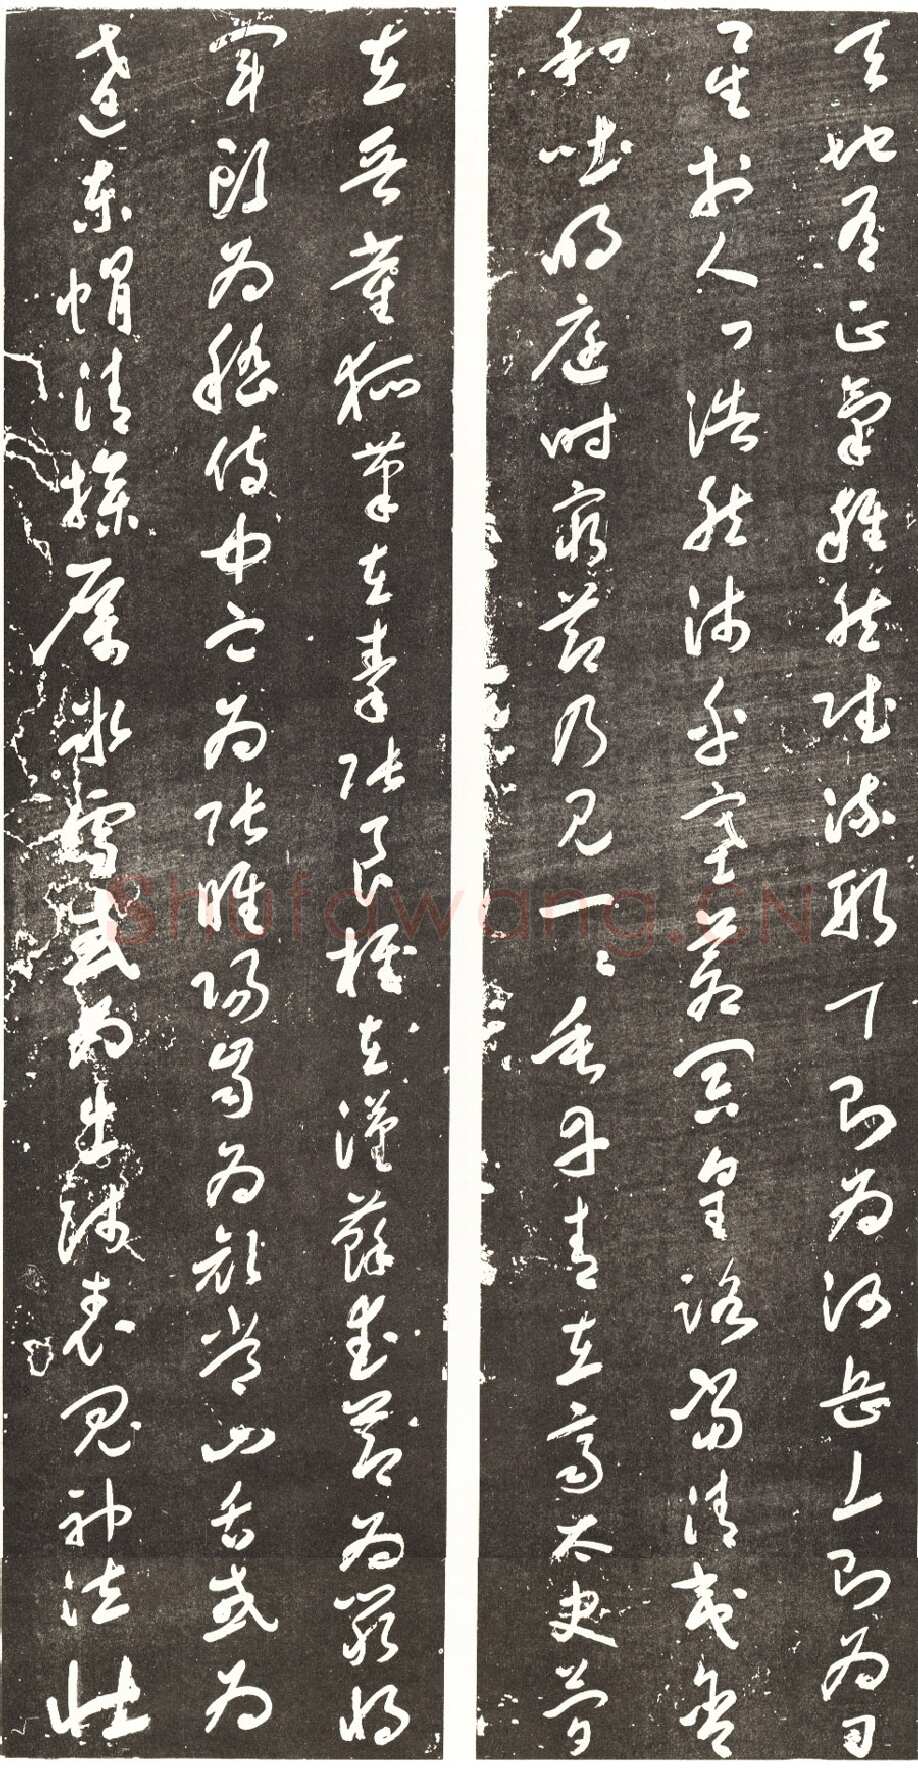 天地有正氣雜然賦流形下則為河岳上則為日
星於人曰浩然沛乎塞蒼冥皇路當清夷含
和吐明庭時窮節乃見一一垂丹青在齊太史簡
在晉董狐筆在秦張良椎在漢蘇武節為嚴將
軍頭為嵇侍中血為張睢陽齒為顏常山舌或為
遼東帽清操厲冰雪或為出師表鬼神泣壯
Shufawang.CN